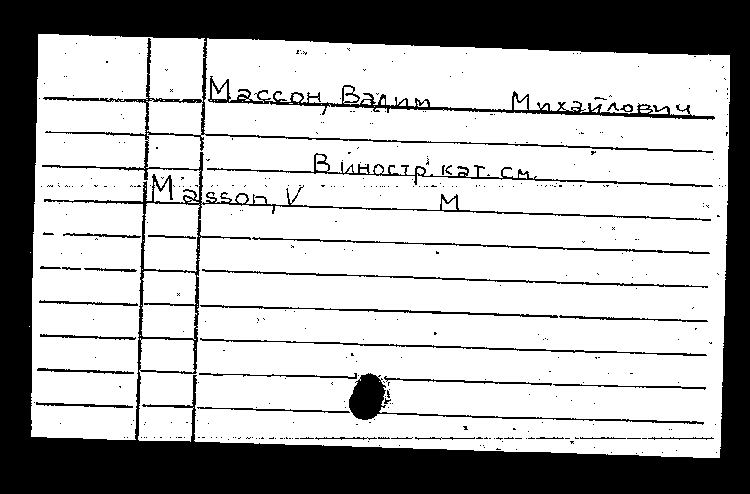 Массон, Вадим Михайлович
В иностр. кат. см.
Masson, V М